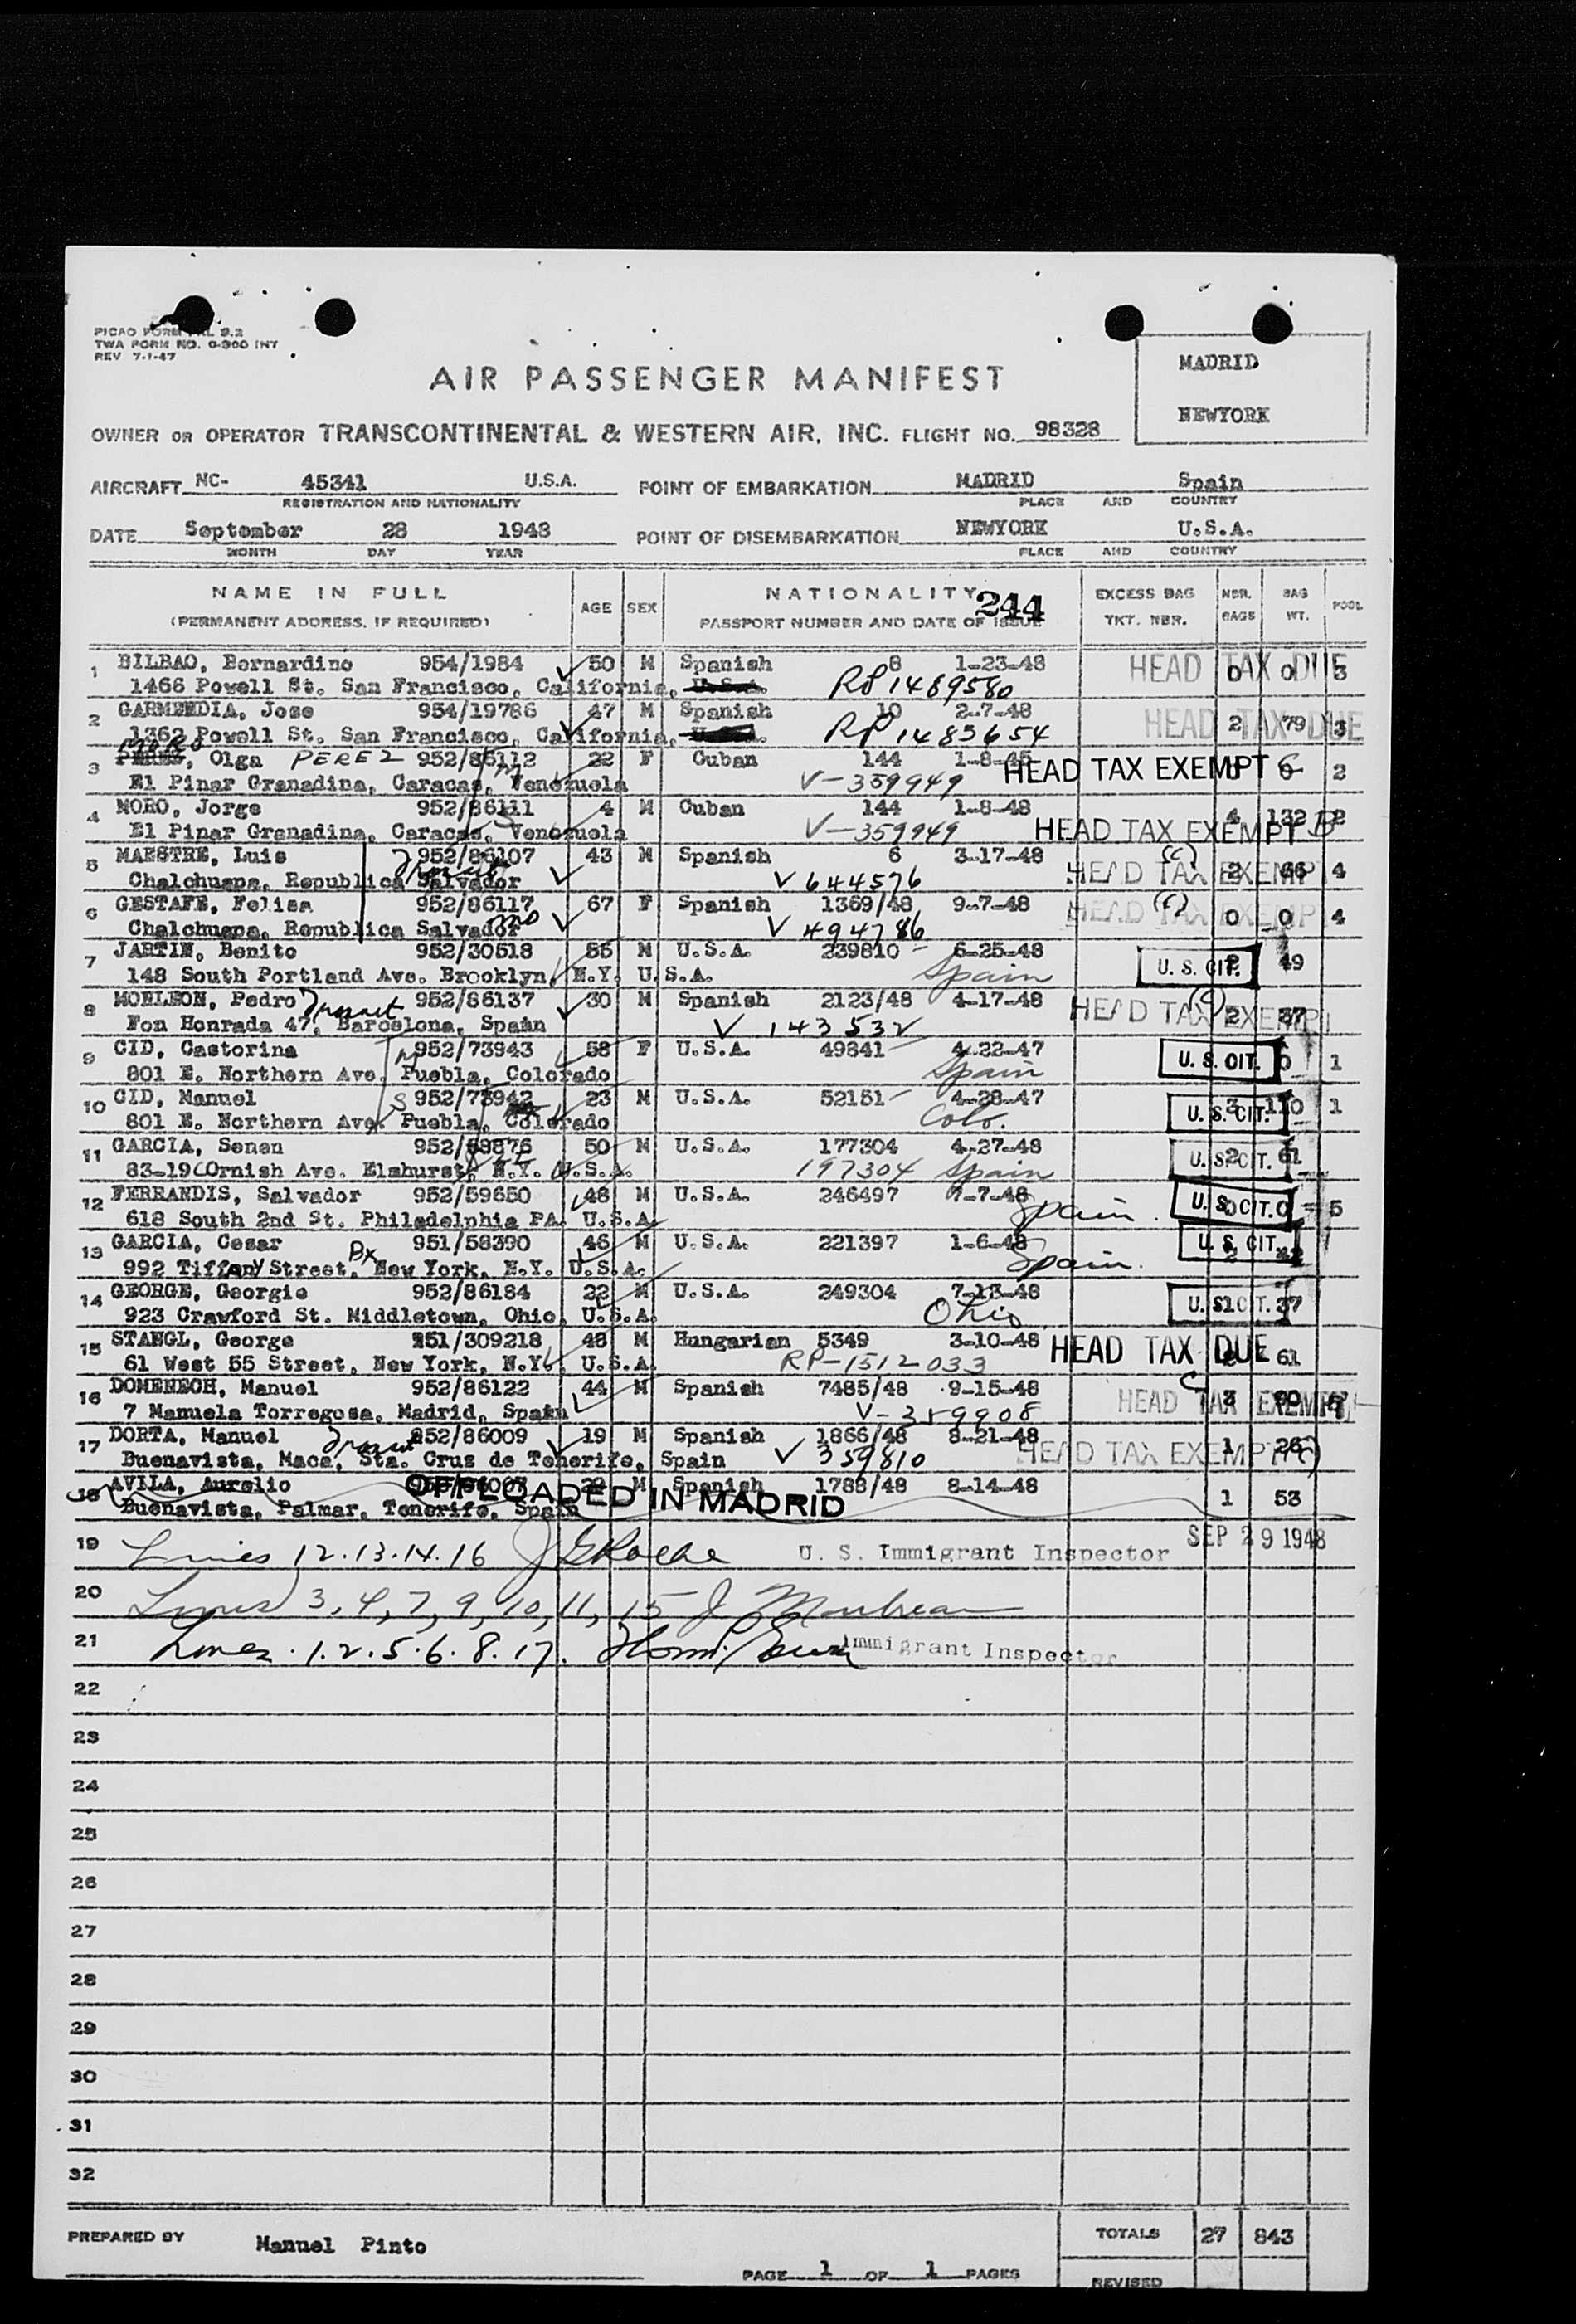 PICAO FORM PAL 9.2
TWA FORM NO. O-300 INT
REV 7-1-47
MADRID
NEWYORK
AIR PASSENGER MANIFEST
OWNER OR OPERATOR TRANSCONTINENTAL & WESTERN AIR, INC. FLIGHT NO. 98328
AIRCRAFT NC- 45341 U.S.A. POINT OF EMBARKATION MADRID Spain
REGISTRATION AND NATIONALITY PLACE AND COUNTRY
DATE September 28 1948 POINT OF DISEMBARKATION NEWYORK U.S.A.
MONTH DAY YEAR PLACE AND COUNTRY
NAME IN FULL AGE SEX NATIONALITY 244 EXCESS BAG NBR. BAG POOL
(PERMANENT ADDRESS, IF REQUIRED) PASSPORT NUMBER AND DATE OF ISSUE TKT. NBR. BAGS WT.
1 BILBAO, Bernardino 954/1984 50 M Spanish 8 1-23-48 HEAD TAX DUE 0 0 3
1466 Powell St. San Francisco, California, U.S.A. RP 1489580
2 GARMENDIA, Jose 954/19786 47 M Spanish 10 2-7-48 HEAD TAX DUE 2 79 3
1362 Powell St. San Francisco, California, RP 1483654
MORO
3 PEREZ, Olga PEREZ 952/86112 22 F Cuban 144 1-8-48 HEAD TAX EXEMPT 2
El Pinar Granadina, Caracas, Venezuela V-359949
4 MORO, Jorge 952/86111 4 M Cuban 144 1-8-48 HEAD TAX EXEMPT 4 132 2
El Pinar Granadina, Caracas, Venezuela V-359949
5 MAESTRE, Luis 952/86107 43 M Spanish 6 3-17-48 HEAD TAX EXEMPT (C) 2 66 4
Chalchuapa, Republica Salvador Transit V 644576
6 GESTAFE, Felisa 952/86117 67 F Spanish 1369/48 9-7-48 HEAD TAX EXEMPT 0 0 4
Chalchuapa, Republica Salvador V 494786
7 JARTIN, Benito 952/30518 55 M U.S.A. 239810 6-25-48 U. S. CIT. 2 49
148 South Portland Ave. Brooklyn, N.Y. U.S.A. Spain
8 MORLEON, Pedro Transit 952/86137 30 M Spanish 2123/48 4-17-48 HEAD TAX EXEMPT (C) 2 37
Fon Honrada 47, Barcelona, Spain V 143532
9 CID, Castorina M 952/73943 58 F U.S.A. 49841 4-22-47 U. S. CIT. 0 1
801 E. Northern Ave. Puebla, Colorado Spain
10 CID, Manuel S 952/73942 23 M U.S.A. 52151 4-28-47 U. S. CIT. 3 110 1
801 E. Northern Ave. Puebla, Colorado Colo.
11 GARCIA, Senen 952/58876 50 M U.S.A. 177304 4-27-48 U. S. CIT. 2 61
83-19 COrnish Ave. Elmhurst, N.Y. U.S.A. 197304 Spain
12 FERRANDIS, Salvador 952/59650 48 M U.S.A. 246497 7-7-48 U. S. CIT. 0 0 5
618 South 2nd St. Philadelphia PA. U.S.A. Spain.
13 GARCIA, Cesar 951/58390 46 M U.S.A. 221397 1-6-48 U. S. CIT. 42
992 Tiffany Street, Bx New York, N.Y. U.S.A. Spain.
14 GEORGE, Georgie 952/86184 22 M U.S.A. 249304 7-13-48 U. S. CIT. 1 37
923 Crawford St. Middletown, Ohio, U.S.A. Ohio
15 STANGL, George 251/309218 48 M Hungarian 5349 3-10-48 HEAD TAX DUE 61
61 West 55 Street, New York, N.Y. U.S.A. RP-1512033
16 DOMENECH, Manuel 952/86122 44 M Spanish 7485/48 9-15-48 HEAD TAX EXEMPT C 3
7 Manuela Torregosa, Madrid, Spain V-359908
17 DORTA, Manuel Transit 952/86009 19 M Spanish 1866/48 8-21-48 HEAD TAX EXEMPT (C) 1 26
Buenavista, Maca, Sta. Cruz de Tenerife, Spain V 359810
18 AVILA, Aurelio M Spanish 1788/48 8-14-48 1 53
Buenavista, Palmar, Tenerife, Spain OFFLOADED IN MADRID
19 Lines 12.13.14.16 U. S. Immigrant Inspector SEP 29 1948
20 Lines 3, 4, 7, 9, 10, 11, 15
21 Lines 1.2.5.6.8.17. Immigrant Inspector
22
23
24
25
26
27
28
29
30
31
32
PREPARED BY Manuel Pinto TOTALS 27 843
PAGE 1 OF 1 PAGES REVISED